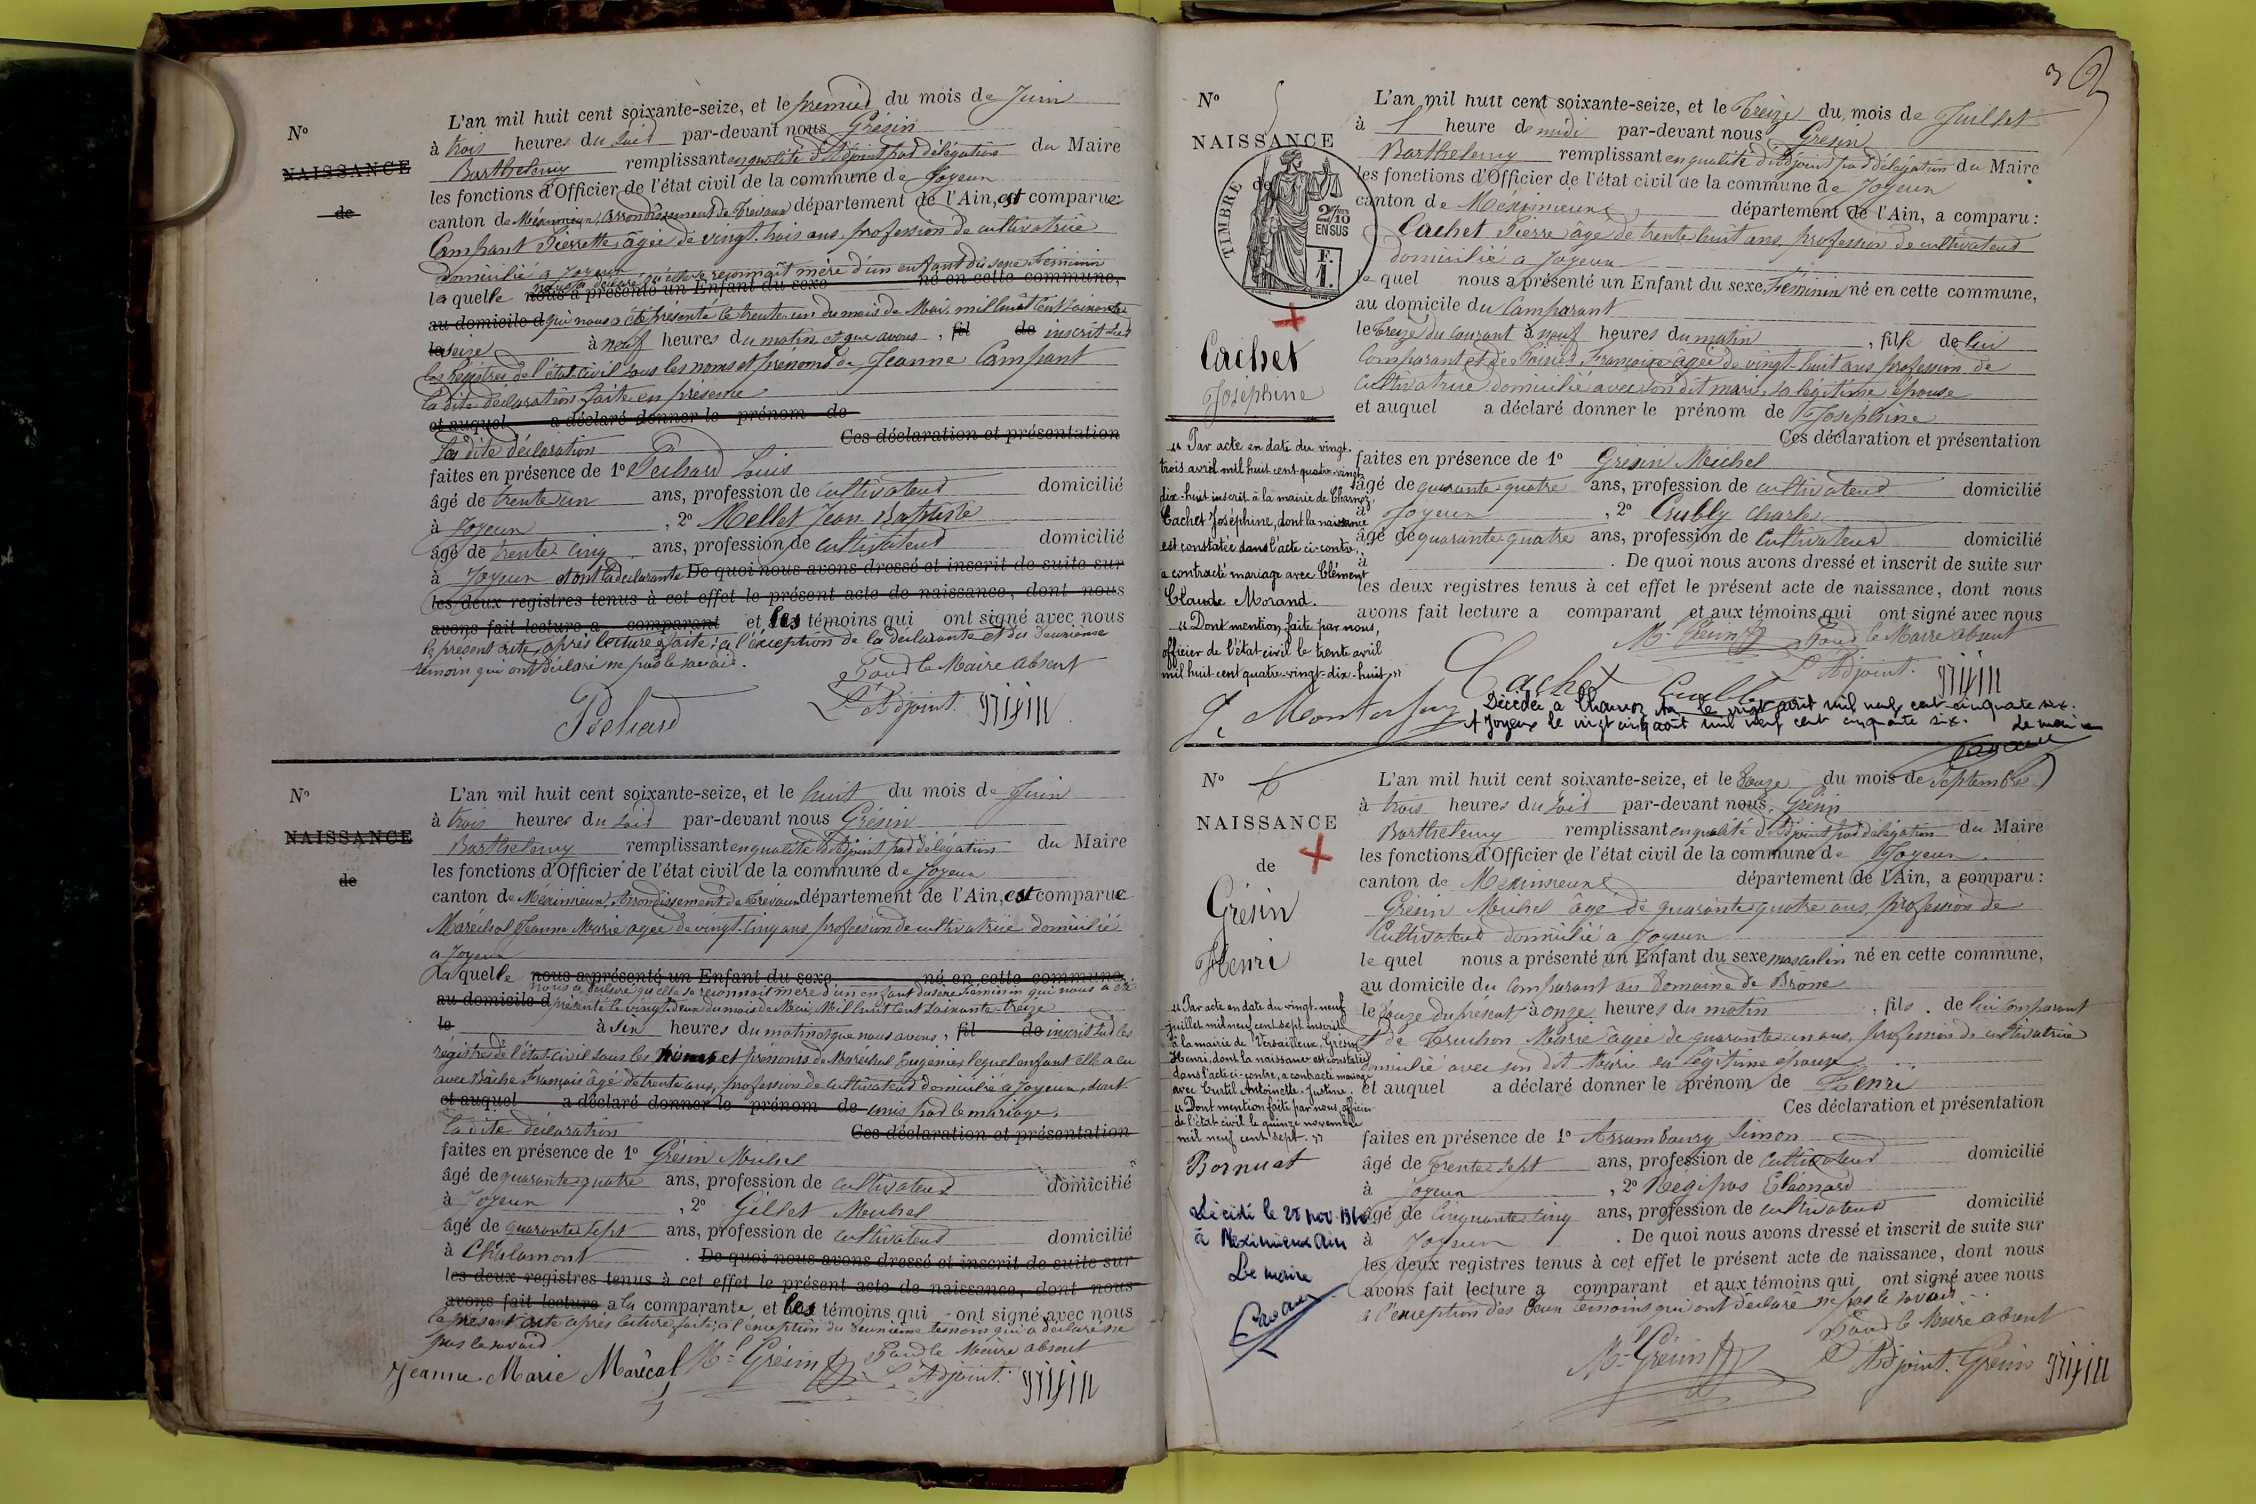 N°
NAISSANCE
de
L'an mil huit cent soixante-seize, et le premier du mois de Juin
à trois heures du soir par-devant nous Grésin
Barthelemy remplissant en qualité d'Adjoint par délégation du Maire
les fonctions d'Officier de l'état civil de la commune de Joyeux
canton de Méximieux, Arrondissement de Trévoux département de l'Ain, est comparue
Compant Pierrette âgée de vingt-trois ans, profession de cultivatrice
domicilié à Joyeux
laquelle nous a déclaré qu'elle se reconnait mère d'un enfant du sexe Féminin
nous a présenté un Enfant du sexe né en cette commune,
au domicile d qui nous a été présenté le trente un du mois de Mai, mil huit cent soixante
le seize à neuf heures du matin et que avons , fil de inscrit sur
les registres de l'état-civil sous les noms et prénoms de Jeanne Compant
la dite déclaration faite en présence
et auquel a déclaré donner le prénom de
La dite déclaration Ces déclaration et présentation
faites en présence de 1° Pechard Louis
âgé de trente un ans, profession de cultivateur domicilié
à Joyeux , 2° Mellet Jean Baptiste
âgé de trente cinq ans, profession de cultivateur domicilié
à Joyeux et ont la déclarante De quoi nous avons dressé et inscrit de suite sur
les deux registres tenus à cet effet le présent acte de naissance, dont nous
avons fait lecture a comparant et les témoins qui ont signé avec nous
le présent acte après lecture faite, à l'exception de la déclarante et du deuxième
témoin qui ont déclaré ne pas le savoir.
Pour le Maire absent
L'Adjoint.
Pechard
N°
NAISSANCE
de
L'an mil huit cent soixante-seize, et le huit du mois de Juin
à trois heures du soir par-devant nous Grésin
Barthelemy remplissant en qualité d'Adjoint par délégation du Maire
les fonctions d'Officier de l'état civil de la commune de Joyeux
canton de Méximieux, Arrondissement de Trévoux département de l'Ain, est comparue
Maréchal Jeanne Marie agée de vingt-cinq ans profession de cultivatrice domicilié
a Joyeux
Laquelle nous a présenté un Enfant du sexe né en cette commune,
nous a déclaré qu'elle se reconnait mère d'un enfant du sexe Féminin qui nous a été
au domicile d présenté le vingt deux du mois de Mai, Mil huit cent soixante-treize
le à six heures du matin et que nous avons , fil de inscrit sur les
régistres de l'état-civil sous les noms et prénoms de Maréchal Eugenie, lequel enfant elle a eu
avec Bâche François âgé de trente ans, profession de cultivateur domicilié à Joyeux, dont
et auquel a déclaré donner le prénom de unis par le mariage.
la dite déclaration Ces déclaration et présentation
faites en présence de 1° Grésin Michel
âgé de quarante quatre ans, profession de cultivateur domicilié
à Joyeux , 2° Gillet Michel
âgé de quarante sept ans, profession de cultivateur domicilié
à Chalamont . De quoi nous avons dressé et inscrit de suite sur
les deux registres tenus à cet effet le présent acte de naissance, dont nous
avons fait lecture a la comparante, et les témoins qui ont signé avec nous
le présent acte après lecture faite, à l'exception du deuxième témoin qui a déclaré ne
pas le savoir
Pour le Maire absent
Jeanne Marie Marêcal Ml Grésin L'Adjoint.
3
N° 5
NAISSANCE
de
TIMBRE
2/10
EN SUS
F.
1.
Cachet
Joséphine
L'an mil huit cent soixante-seize, et le Treize du mois de Juillet
à 1 heure de midi par-devant nous Gresin
Barthelemy remplissant en qualité d'Adjoint par délégation du Maire
les fonctions d'Officier de l'état civil de la commune de Joyeux
canton de Méximieux département de l'Ain, a comparu :
Cachet Pierre âgé de trente huit ans, profession de cultivateur
domicilié a Joyeux
le quel nous a présenté un Enfant du sexe Féminin né en cette commune,
au domicile du Comparant
le Treize du courant à neuf heures du matin , fille de lui
Comparant et de Françoise âgée de vingt-huit ans profession de
cultivatrice domicilié avec son dit mari, sa légitime épouse
et auquel a déclaré donner le prénom de Josephine
Ces déclaration et présentation
faites en présence de 1° Gresin Michel
âgé de quarante quatre ans, profession de cultivateur domicilié
à Joyeux , 2° Cubly Charles
âgé de quarante quatre ans, profession de Cultivateur domicilié
à . De quoi nous avons dressé et inscrit de suite sur
les deux registres tenus à cet effet le présent acte de naissance, dont nous
avons fait lecture a comparant et aux témoins qui ont signé avec nous
Ml Gresin Pour le Maire absent
L'Adjoint.
Cachet
« Par acte en date du vingt-
trois avril mil huit cent quatre-vingt
dix-huit inscrit à la mairie de Charnoz,
Cachet Joséphine, dont la naissance
est constatée dans l'acte ci-contre,
a contracté mariage avec Clément
Claude Morand.
« Dont mention faite par nous,
officier de l'état civil le trente avril
mil huit cent quatre-vingt-dix-huit »
Décédée à Charnoz le vingt août mil neuf cent cinquante six.
Joyeux le vingt cinq août mil neuf cent cinquante six. Le maire
N° 6
NAISSANCE
de
Grésin
Henri
L'an mil huit cent soixante-seize, et le Douze du mois de Septembre
à trois heures du soir par-devant nous Grésin
Barthelemy remplissant en qualité d'Adjoint par délégation du Maire
les fonctions d'Officier de l'état civil de la commune de Joyeux
canton de Méximieux département de l'Ain, a comparu :
Grésin Michel âgé de quarante quatre ans, profession de
Cultivateur domicilié a Joyeux
le quel nous a présenté un Enfant du sexe masculin né en cette commune,
au domicile du Comparant au Domaine de Brône
le Douze du présent à onze heures du matin , fils de lui Comparant
et de Truchon Marie âgée de quarante un ans, profession de cultivatrice
domicilié avec son dit Mari sa légitime épouse
et auquel a déclaré donner le prénom de Henri
Ces déclaration et présentation
faites en présence de 1° Simon
âgé de Trente sept ans, profession de Cultivateur domicilié
à Joyeux , 2°
âgé de Cinquante cinq ans, profession de cultivateur domicilié
à Joyeux . De quoi nous avons dressé et inscrit de suite sur
les deux registres tenus à cet effet le présent acte de naissance, dont nous
avons fait lecture a comparant et aux témoins qui ont signé avec nous
a l'exception des deux témoins qui ont déclaré ne pas le savoir
Pour le Maire absent
Ml Grésin L'Adjoint. Gresin
« Par acte en date du vingt-neuf
juillet mil neuf cent sept inscrit
à la mairie de Versailleux, Grésin
Henri, dont la naissance est constatée
dans l'acte ci-contre, a contracté mariage
avec Curtil Antoinette-Justine.
« Dont mention faite par nous, officier
de l'état civil le quinze novembre
mil neuf cent sept. »
Bornuat
Décédé le 28 nov.
à Meximieux Ain
Le maire